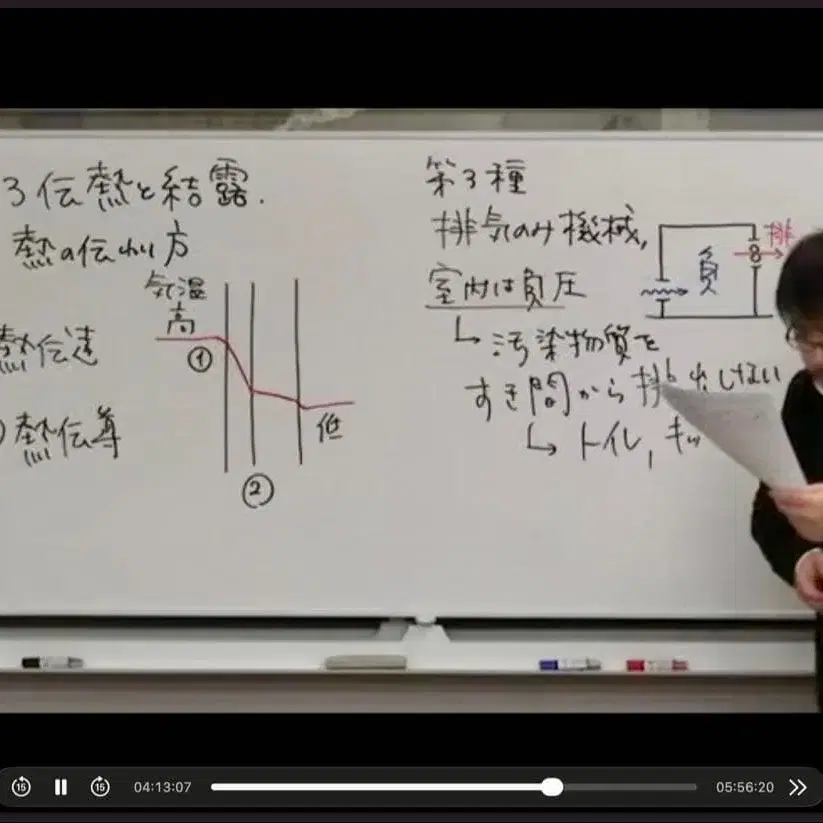 3 伝熱と結露.
熱の伝わり方
気温
高
①
熱伝達
熱伝導
低
②
第3種
排気のみ機械,
室内は負圧
↳ 汚染物質を
すき間から排出しない
↳ トイレ, キッ
排
負
15
15
04:13:07
05:56:20